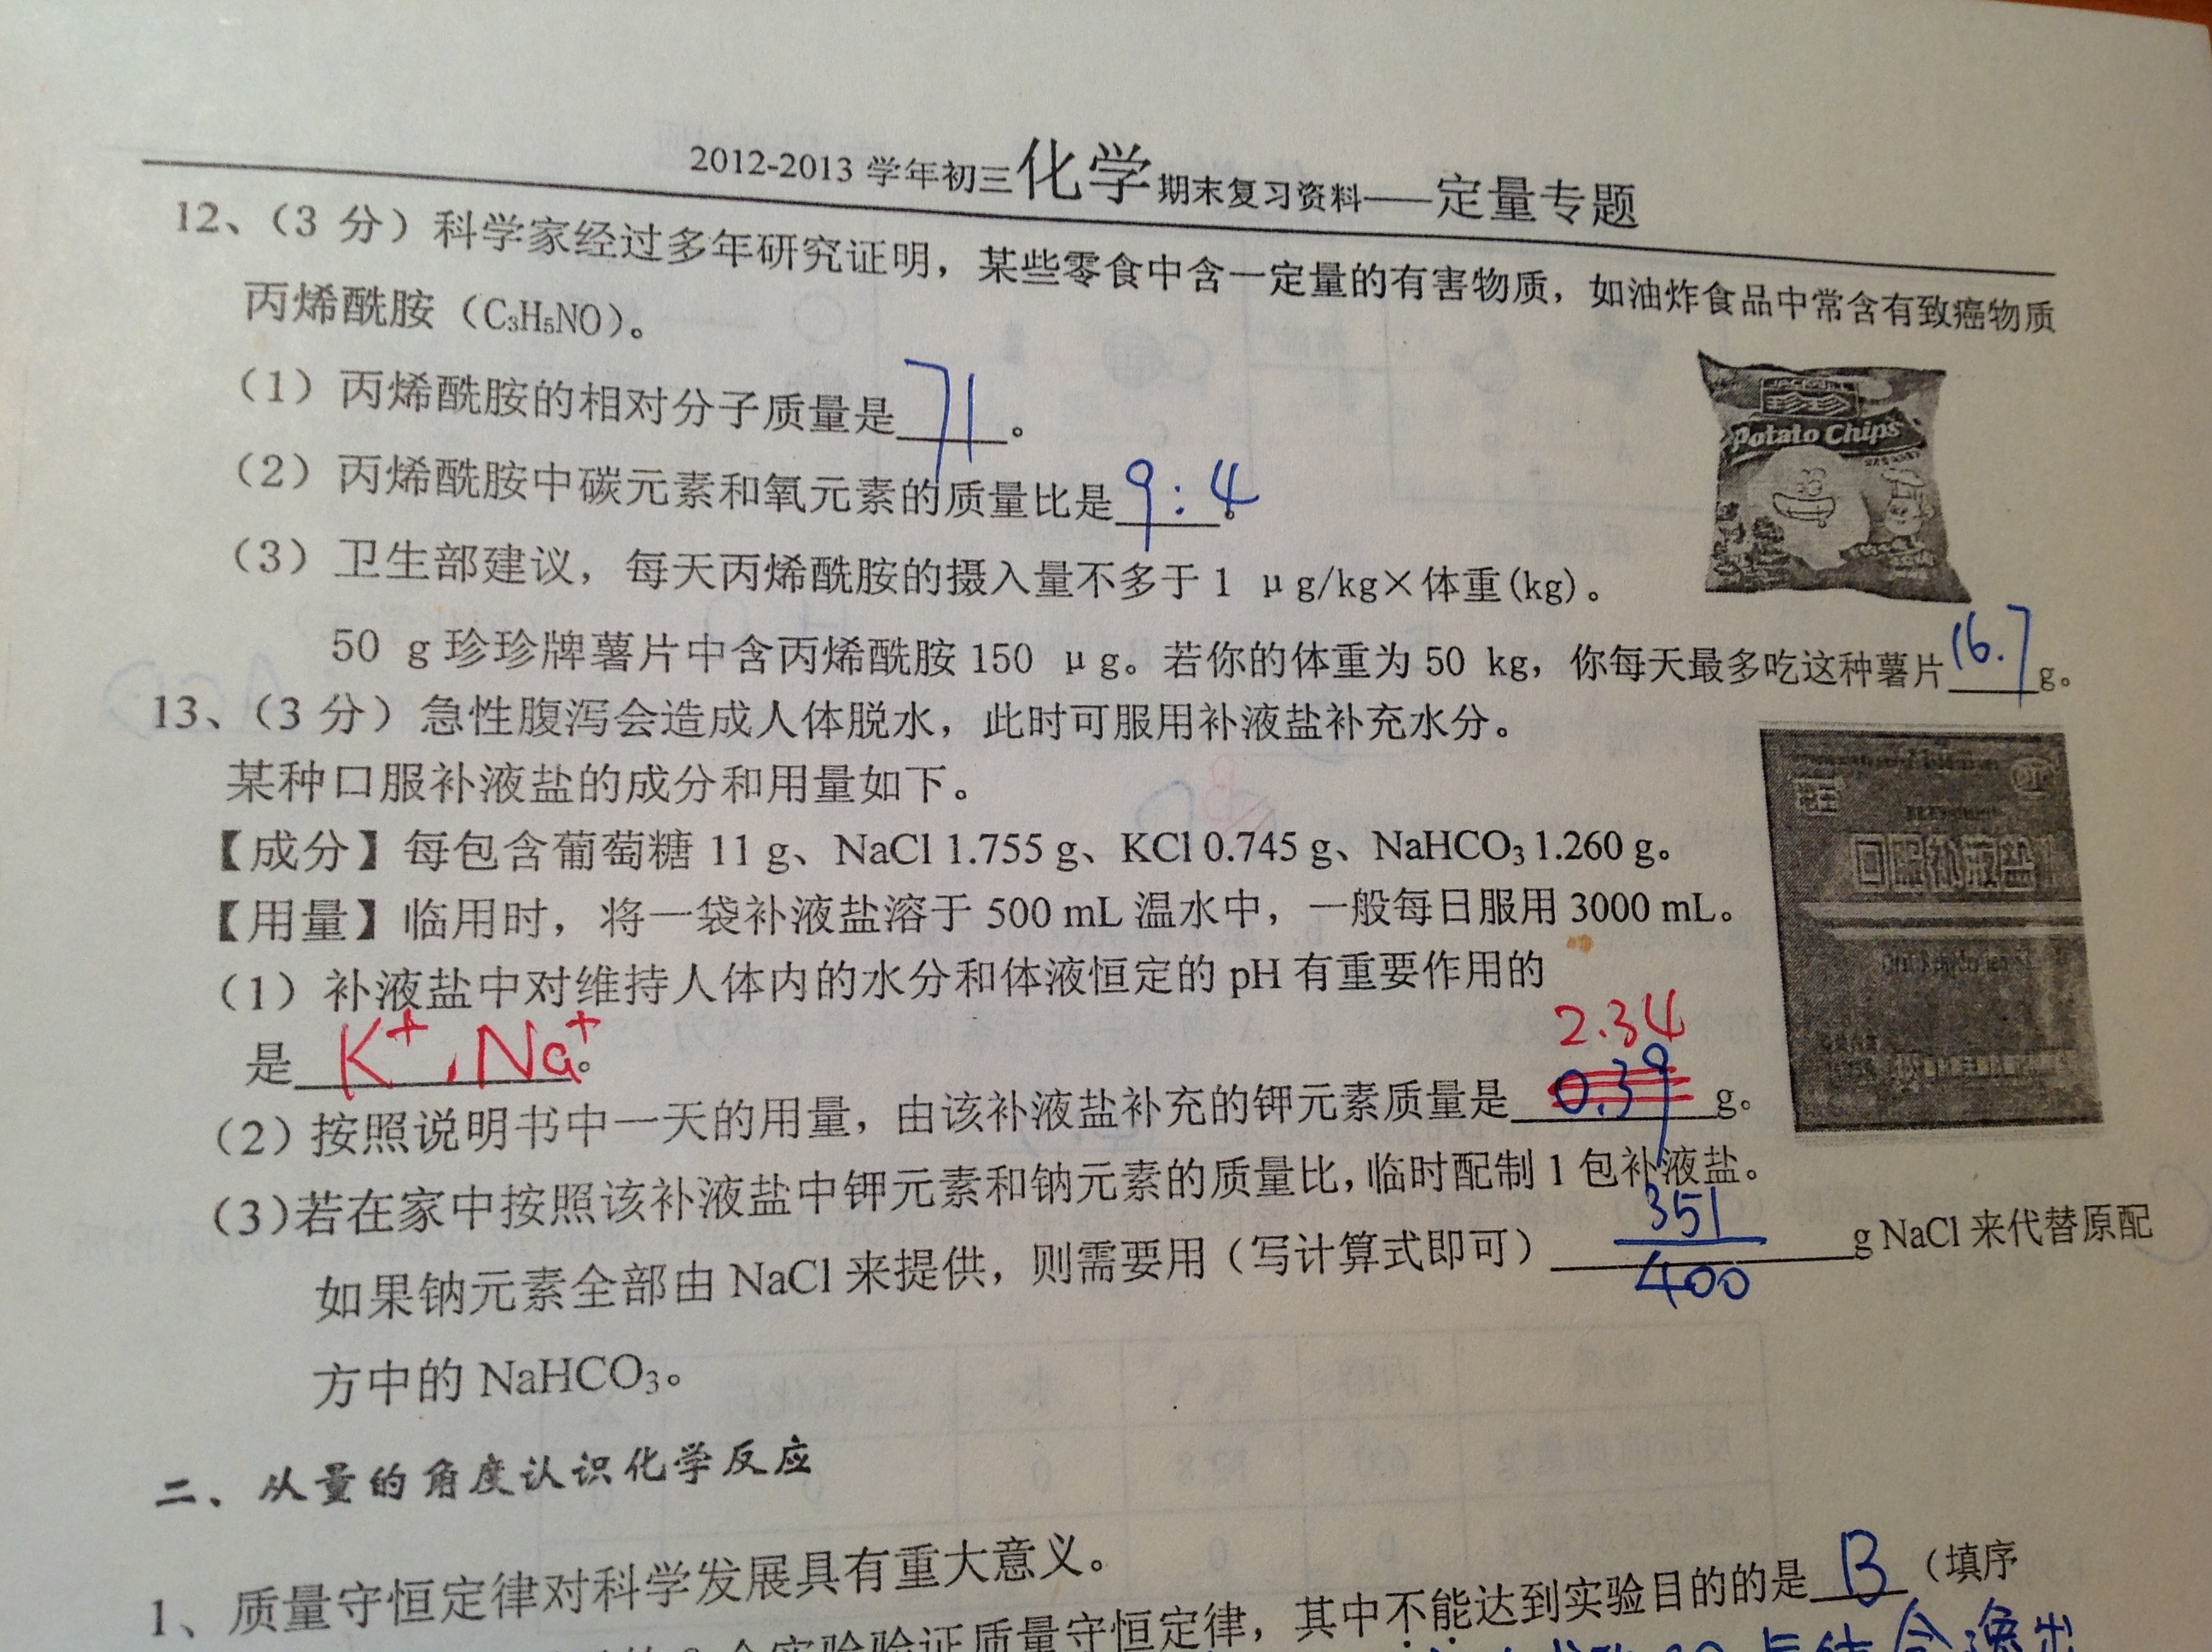 2012-2013 学年初三化学期末复习资料——定量专题
12、（3 分）科学家经过多年研究证明，某些零食中含一定量的有害物质，如油炸食品中常含有致癌物质
丙烯酰胺（C₃H₅NO）。
（1）丙烯酰胺的相对分子质量是 71 。
（2）丙烯酰胺中碳元素和氧元素的质量比是 9:4 。
（3）卫生部建议，每天丙烯酰胺的摄入量不多于 1 μg/kg×体重(kg)。
珍珍
Potato Chips
50 g 珍珍牌薯片中含丙烯酰胺 150 μg。若你的体重为 50 kg，你每天最多吃这种薯片 16.7 g。
13、（3 分）急性腹泻会造成人体脱水，此时可服用补液盐补充水分。
某种口服补液盐的成分和用量如下。
【成分】每包含葡萄糖 11 g、NaCl 1.755 g、KCl 0.745 g、NaHCO₃ 1.260 g。
口服补液盐
【用量】临用时，将一袋补液盐溶于 500 mL 温水中，一般每日服用 3000 mL。
（1）补液盐中对维持人体内的水分和体液恒定的 pH 有重要作用的
是 K⁺、Na⁺ 。
2.34
（2）按照说明书中一天的用量，由该补液盐补充的钾元素质量是 0.39 g。
（3）若在家中按照该补液盐中钾元素和钠元素的质量比，临时配制 1 包补液盐。
如果钠元素全部由 NaCl 来提供，则需要用（写计算式即可） 351/400 g NaCl 来代替原配
方中的 NaHCO₃。
二、从量的角度认识化学反应
1、质量守恒定律对科学发展具有重大意义。
个实验验证质量守恒定律，其中不能达到实验目的的是 B （填序